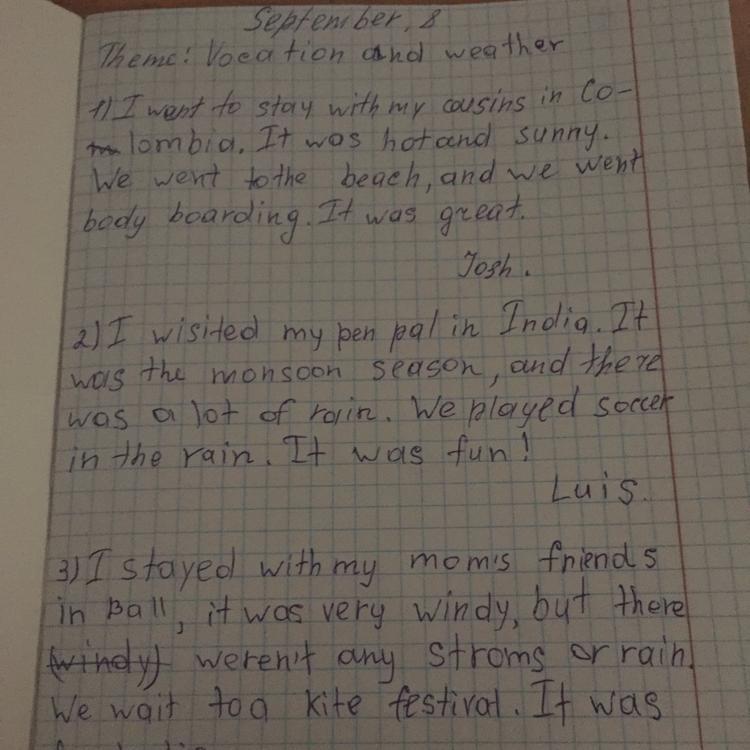 September, 8
Theme: Vocation and weather
1) I want to stay with my cousins in Co-
lombia. It was hot and sunny.
We went to the beach, and we went
body boarding. It was great.
Josh.
2) I wisited my pen pal in India. It
was the monsoon season, and there
was a lot of rain. We played soccer
in the rain. It was fun!
Luis.
3) I stayed with my mom's friends
in Ball, it was very windy, but there
(windy) weren't any stroms or rain.
We wait too kite festival. It was